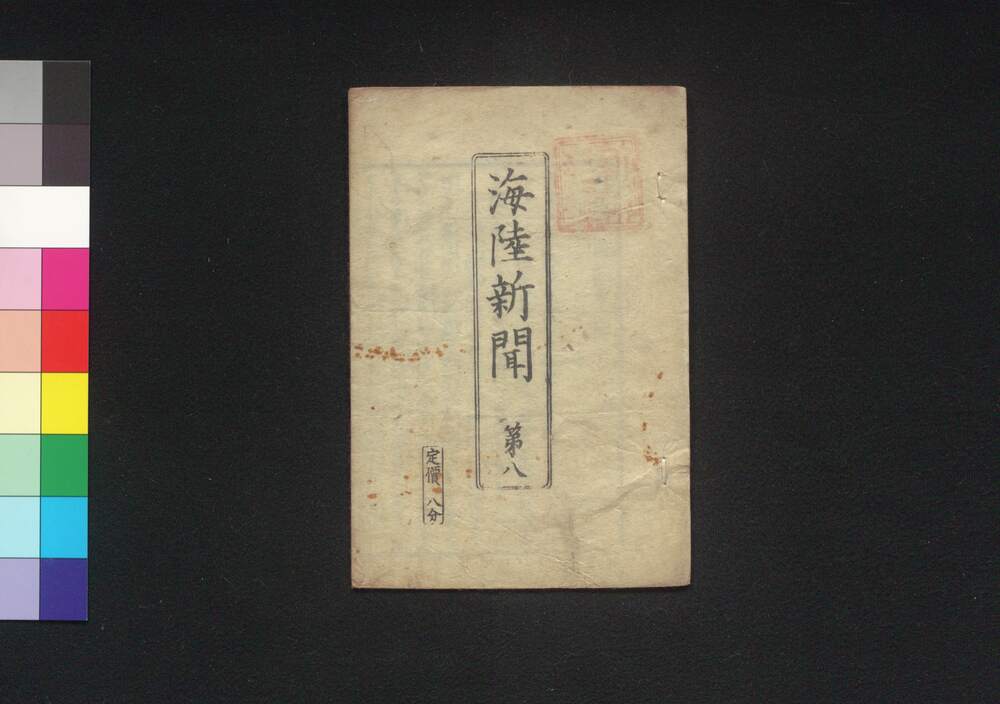 海陸新聞 第八
定價 八分